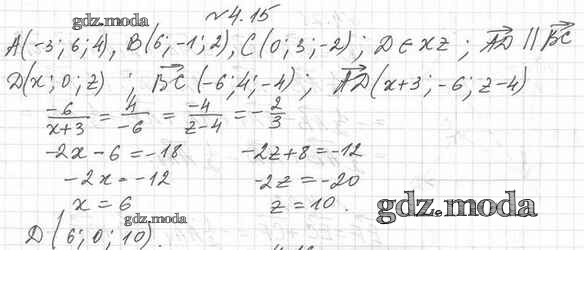 №4.15
gdz.moda
A(-3; 6; 4), B(6; -1; 2), C(0; 3; -2); D ∈ xz; AD⃗ || BC⃗
D(x; 0; z) ; BC⃗ (-6; 4; -4); AD⃗(x+3; -6; z-4)
-6/(x+3) = 4/-6 = -4/(z-4) = -2/3
-2x - 6 = -18 -2z + 8 = -12
-2x = -12 -2z = -20
x = 6 z = 10.
gdz.moda
gdz.moda
D(6; 0; 10).